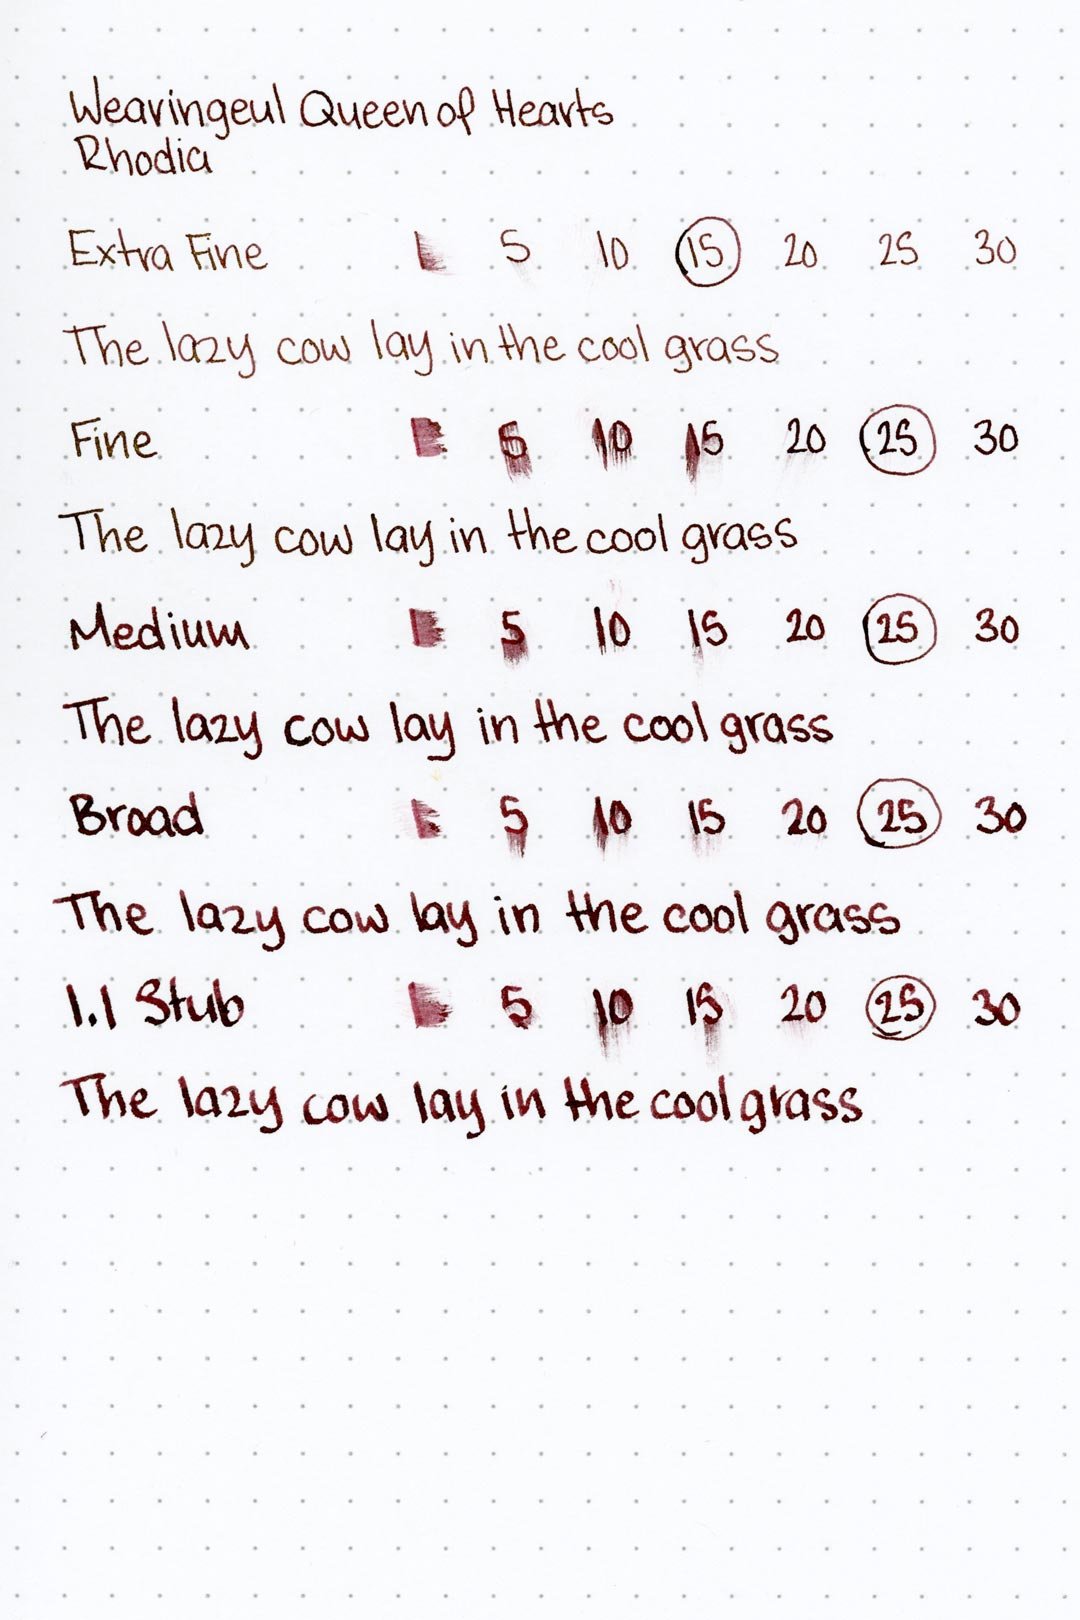 Wearingeul Queen of Hearts
Rhodia
Extra Fine 1 5 10 15 20 25 30
The lazy cow lay in the cool grass
Fine 1 5 10 15 20 25 30
The lazy cow lay in the cool grass
Medium 1 5 10 15 20 25 30
The lazy cow lay in the cool grass
Broad 1 5 10 15 20 25 30
The lazy cow lay in the cool grass
1.1 Stub 1 5 10 15 20 25 30
The lazy cow lay in the cool grass